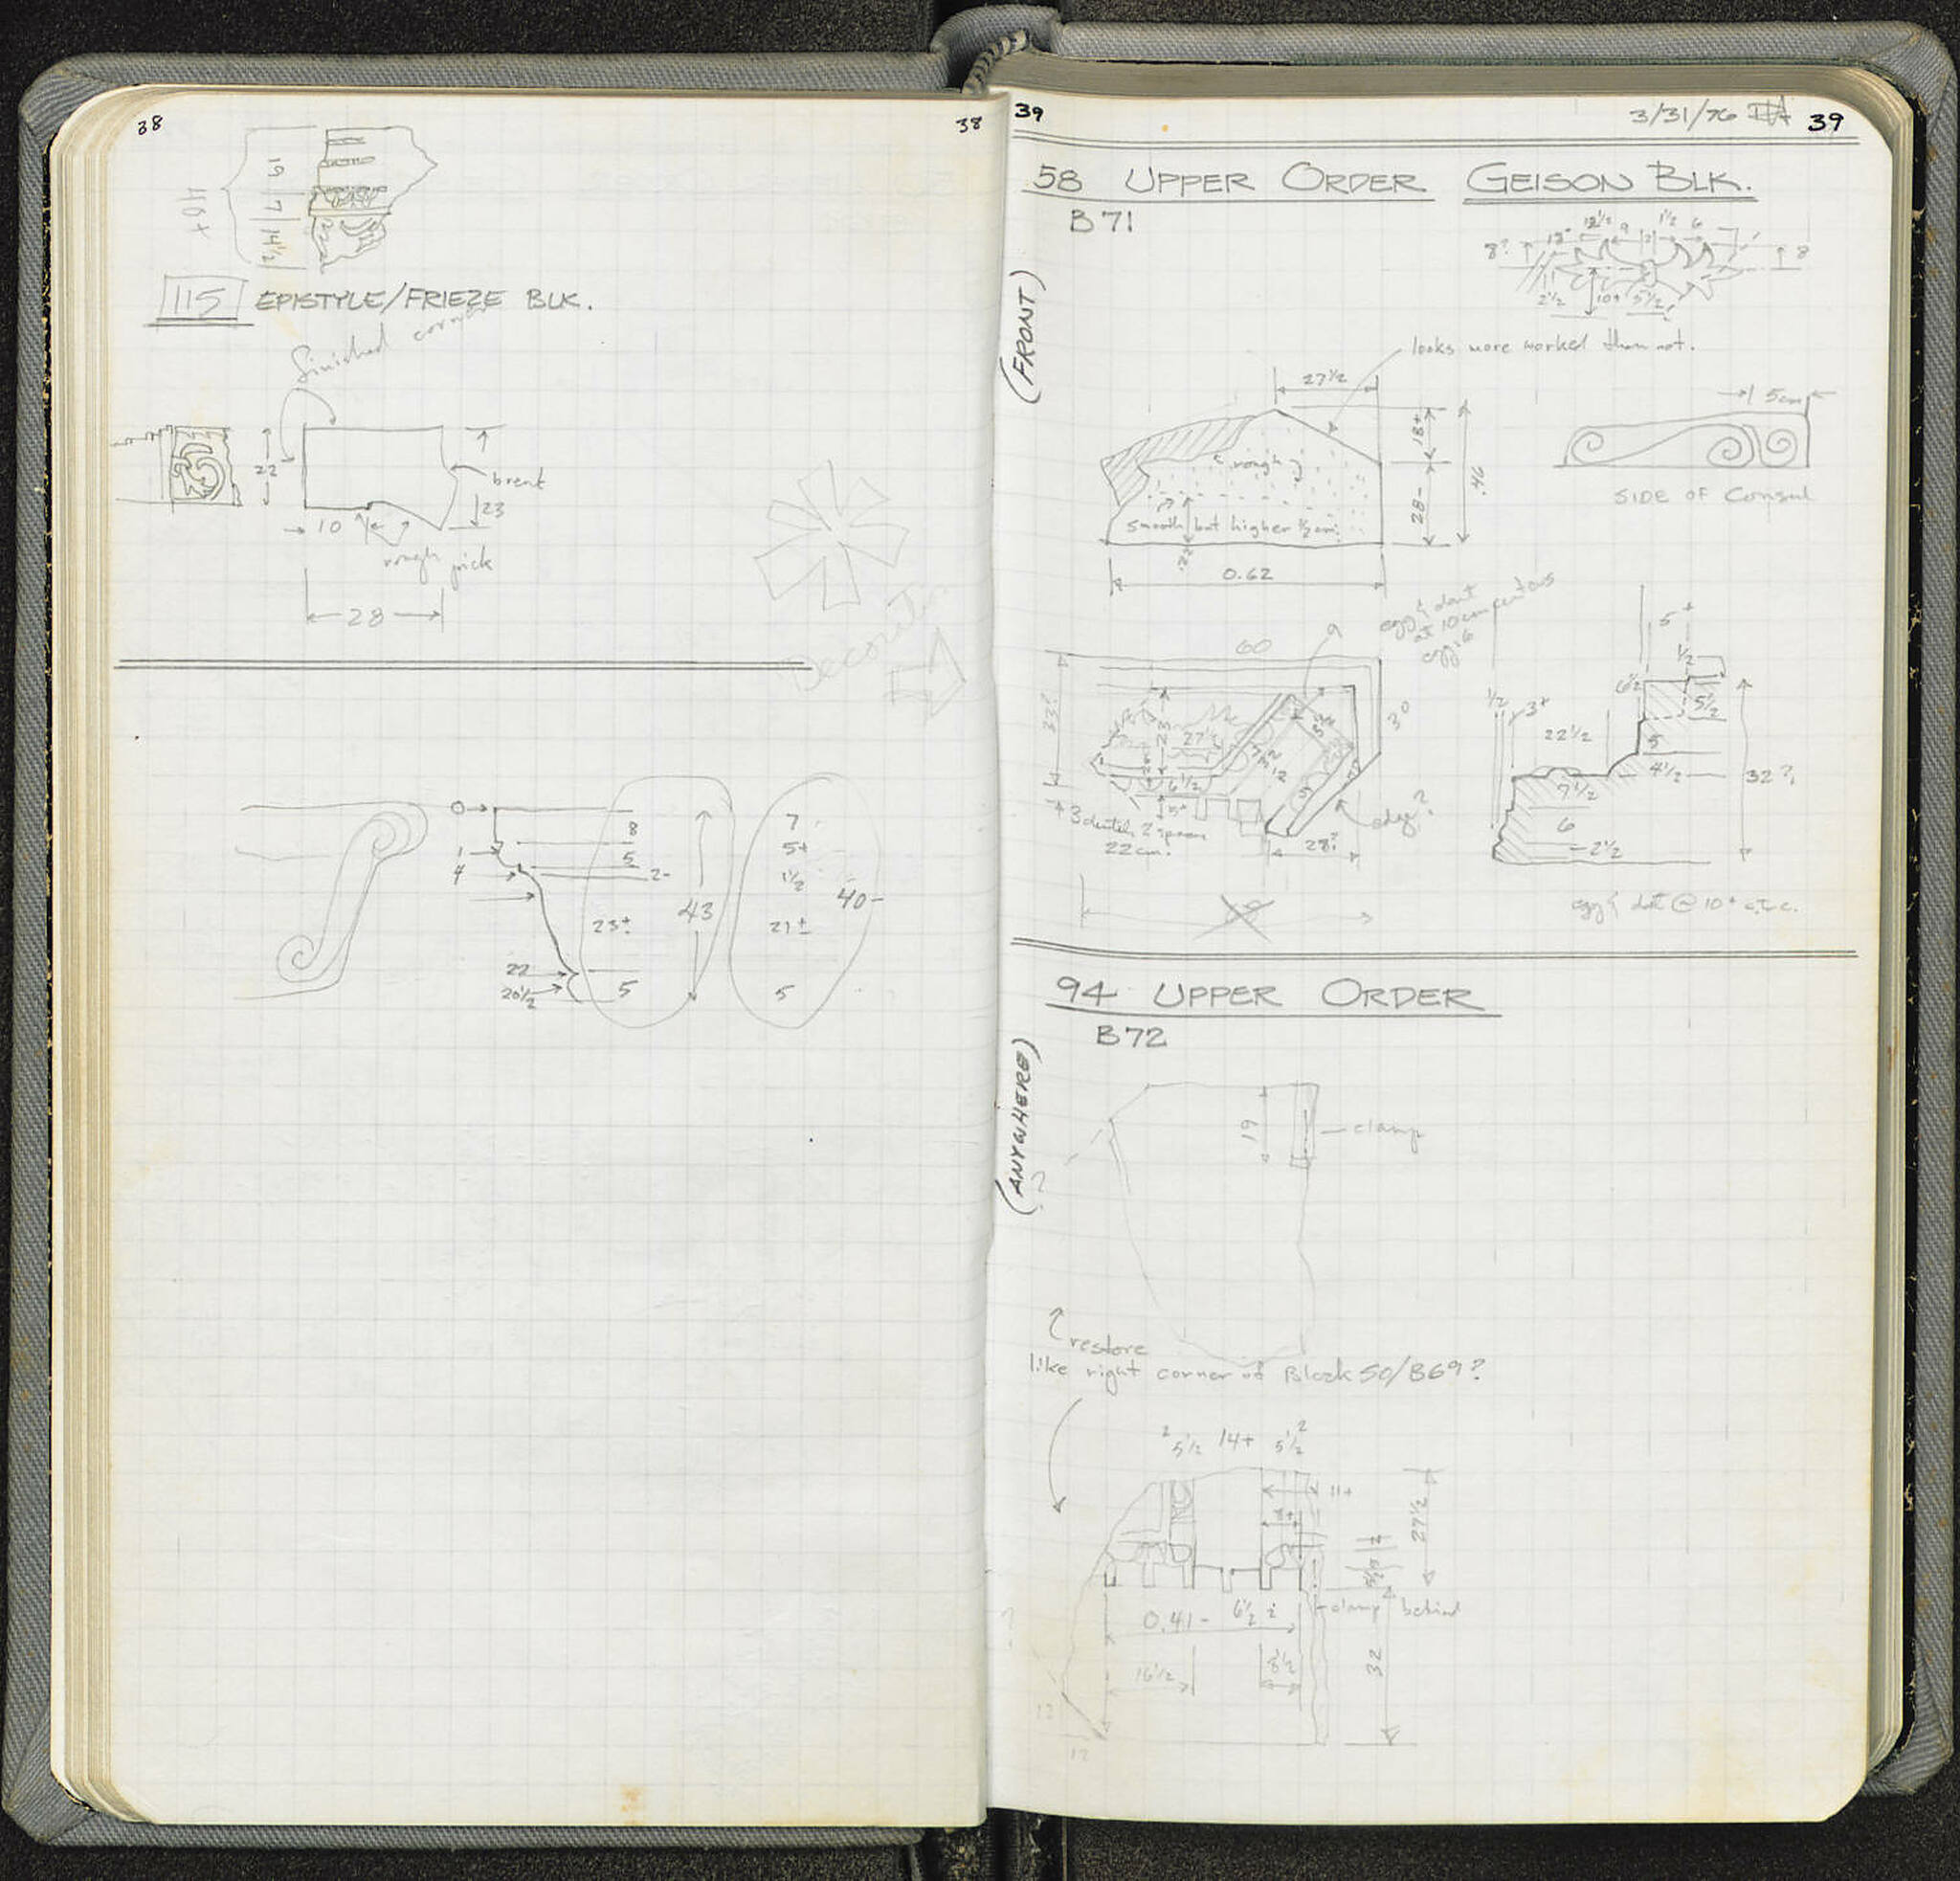 38
38
19
7
14 1/2
40+
115 EPISTYLE/FRIEZE BLK.
finished corner
22
break
23
10
rough pick
28
0
8
1
5
4
2-
23±
43
22
20 1/2
5
7
5+
1 1/2
40-
21±
5
39
3/31/76
39
58 UPPER ORDER GEISON BLK.
B71
(FRONT)
12 1/2
9
1 1/2
6
8?
8
2 1/2
10+
5 1/2
looks more worked than not.
27 1/2
18+
rough
28-
.46
smooth but higher 1/2 cm.
.22
0.62
5cm
SIDE OF Consul
egg & dart
at 10cm centers
egg: 6
60
9
33?
23
27 1/2
30
6 1/2
5+
edge?
3 dentils 2 spaces
22cm.
28?
5+
1/2
6 1/2
5 1/2
1/2
3+
22 1/2
5
4 1/2
32?
7 1/2
6
2 1/2
egg & dart @ 10+ c.t.c.
94 UPPER ORDER
B72
(ANYWHERE)
?
19
clamp
? restore
like right corner of Block 50/B69?
5 1/2 14+ 5 1/2
11+
27 1/2
clamp behind
0.41-
6 1/2
16 1/2
8 1/2
32
12
12